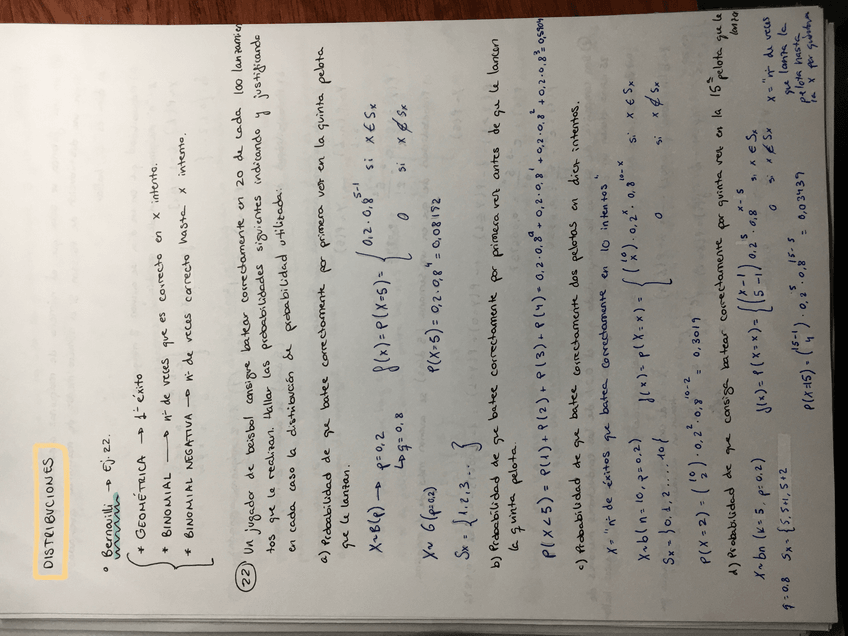 DISTRIBUCIONES
• Bernailli → Ej. 22.
* GEOMÉTRICA → 1º éxito
* BINOMIAL → nº de veces que es correcto en x intento.
* BINOMIAL NEGATIVA → nº de veces correcto hasta x intento.
22) Un jugador de baisbol consigue batear correctamente en 20 de cada 100 lanzamien
tos que le realizan. Hallar las probabilidades siguientes indicando y justificando
en cada caso la distribución de probabilidad utilizada:
a) Probabilidad de que batee correctamente por primera vez en la quinta pelota
que le lanzan.
X~B(p) → p=0,2
↳ q=0,8
f(x)=P(X=5)= { 0,2·0,8^5-1 si x∈Sx
0 si x∉Sx
X~G(p=0,2)
P(X=5)=0,2·0,8^4=0,08192
Sx={1,2,3...}
b) Probabilidad de que batee correctamente por primera vez antes de que le lancen
la quinta pelota.
P(X<5)=P(1)+P(2)+P(3)+P(4)=0,2·0,8^0+0,2·0,8^1+0,2·0,8^2+0,2·0,8^3=0,5904
c) Probabilidad de que batee correctamente dos pelotas en diez intentos.
X="nº de éxitos que batea correctamente en 10 intentos"
X~b(n=10, p=0.2) f(x)=P(X=x)= { (10 x)·0,2^x·0,8^10-x si x∈Sx
Sx={0,1,2....10} 0 si x∉Sx
P(X=2)=(10 2)·0,2^2·0,8^10-2=0,3019
d) Probabilidad de que consiga batear correctamente por quinta vez en la 15ª pelota que le
lanzan
X~bn(k=5, p=0,2) f(x)=P(X=x)= { (x-1 5-1) 0,2^5·0,8^x-5 si x∈Sx
0 si x∉Sx
q=0.8 Sx={5,5+1,5+2
P(X=15)=(15-1 4)·0,2^5·0,8^15-5=0,03439
X="nº de veces
que lanza la
pelota hasta
la x por quinta